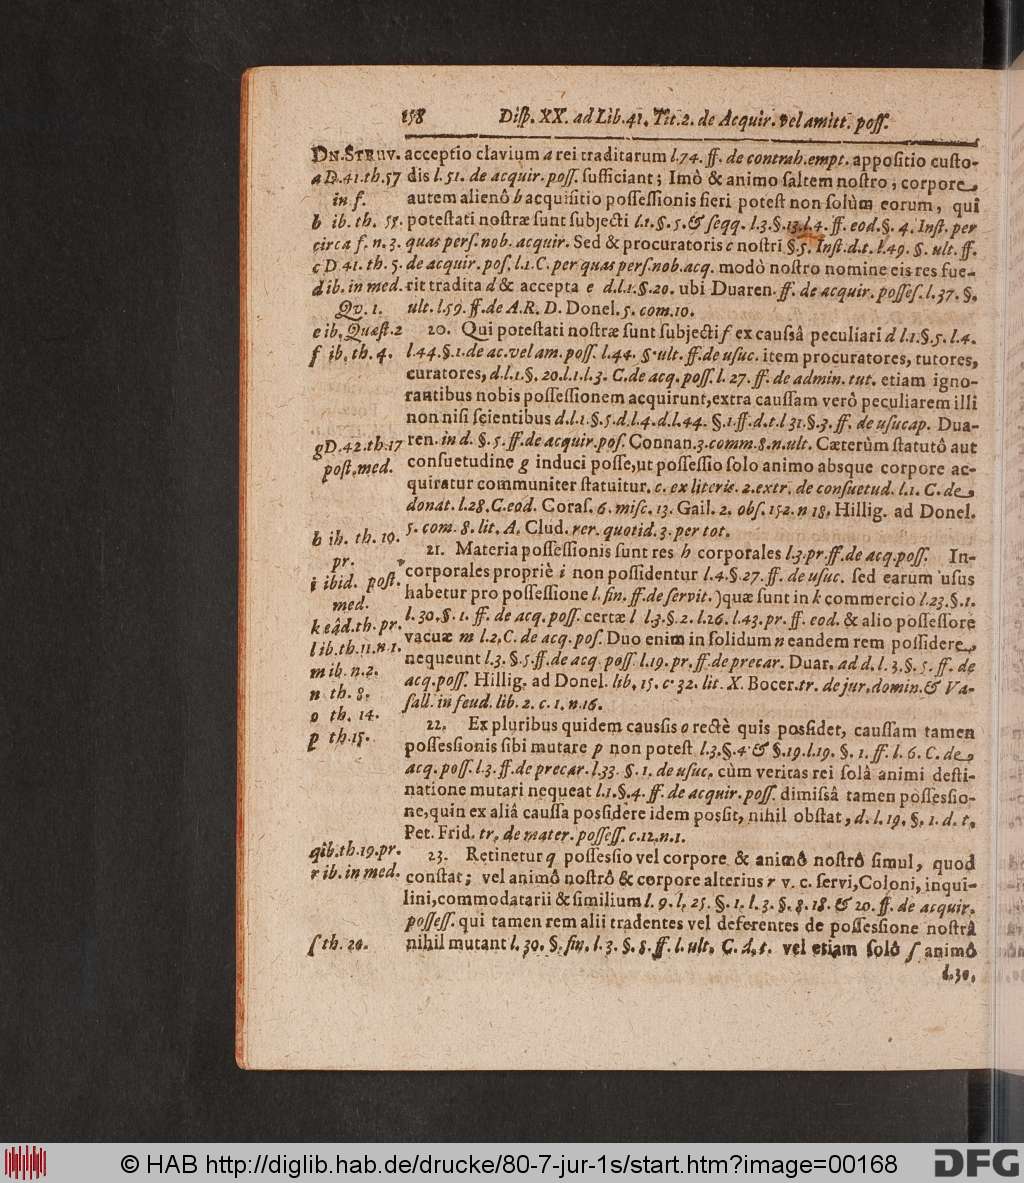 158 Disp. XX. ad Lib. 41. Tit. 2. de Acquir. vel amitt. poss.
DN. STRUV. acceptio clavium a rei traditarum l. 74. ff. de contrah. empt. appositio custo-
a D. 41. th. 57 dis l. 51. de acquir. poss. sufficiant; Imò & animo saltem nostro, corpore
in f. autem alienô b acquisitio possessionis fieri potest non solùm eorum, qui
b ib. th. 55. potestati nostræ sunt subjecti l. 1. §. 5. & seqq. l. 3. §. 13. l. 4. ff. eod. §. 4. Inst. per
circa f. n. 3. quas pers. nob. acquir. Sed & procuratoris c nostri §. 5. Inst. d. t. l. 49. §. ult. ff.
c D. 41. th. 5. de acquir. pos. l. 1. C. per quas pers. nob. acq. modò nostro nomine eis res fue-
d ib. in med. rit tradita d & accepta e d. l. 1. §. 20. ubi Duaren. ff. de acquir. posses. l. 37. §.
Qv. 1. ult. l. 59. ff. de A. R. D. Donel. 5. com. 10.
e ib. Quæst. 2 20. Qui potestati nostræ sunt subjecti f ex caussâ peculiari d l. 1. §. 5. l. 4.
f ib. th. 4. l. 44. §. 1. de ac. vel am. poss. l. 44. §. ult. ff. de usuc. item procuratores, tutores,
curatores, d. l. 1. §. 20. l. 1. l. 3. C. de acq. poss. l. 27. ff. de admin. tut. etiam igno-
rantibus nobis possessionem acquirunt, extra caussam verò peculiarem illi
non nisi scientibus d. l. 1. §. 5. d. l. 4. d. l. 44. §. 1. ff. d. t. l 31. §. 3. ff. de usucap. Dua-
g D. 42. th. 17 ren. in d. §. 5. ff. de acquir. pos. Connan. 3. comm. 8. n. ult. Cæterùm statutô aut
post. med. consuetudine g induci posse, ut possessio solo animo absque corpore ac-
quiratur communiter statuitur. c. ex literis. 2. extr. de consuetud. l. 1. C. de
donat. l. 28. C. eod. Coras. 6. misc. 13. Gail. 2. obs. 152. n 18. Hillig. ad Donel.
5. com. 8. lit. A. Clud. rer. quotid. 3. per tot.
h ib. th. 10. 21. Materia possessionis sunt res h corporales l. 3. pr. ff. de acq. poss. In-
pr. corporales propriè i non possidentur l. 4. §. 27. ff. de usuc. sed earum usus
i ibid. post. habetur pro possessione l. fin. ff. de servit.) quæ sunt in k commercio l. 23. §. 1.
med. l. 30. §. 1. ff. de acq. poss. certæ l l. 3. §. 2. l. 26. l. 43. pr. ff. eod. & alio possessore
k eâd. th. pr. vacuæ m l. 2. C. de acq. pos. Duo enim in solidum n eandem rem possidere
l ib. th. 11. n. 1. nequeunt l. 3. §. 5. ff. de acq. poss. l. 19. pr. ff. de precar. Duar. ad d. l. 3. §. 5. ff. de
m ib. n. 2. acq. poss. Hillig. ad Donel. lib. 15. c. 32. lit. X. Bocer. tr. de jur. domin. & Va-
n th. 8. sall. in feud. lib. 2. c. 1. n. 16.
o th. 14. 22. Ex pluribus quidem caussis o rectè quis possidet, caussam tamen
p th. 15. possessionis sibi mutare p non potest l. 3. §. 4. & §. 19. l. 19. §. 1. ff. l. 6. C. de
acq. poss. l. 3. ff. de precar. l. 33. §. 1. de usuc. cùm veritas rei solâ animi desti-
natione mutari nequeat l. 1. §. 4. ff. de acquir. poss. dimissâ tamen possessio-
ne, quin ex aliâ caussa possidere idem possit, nihil obstat, d. l. 19. §. 1. d. t.
Pet. Frid. tr. de mater. possess. c. 12. n. 1.
q ib. th. 19. pr. 23. Retinetur q possessio vel corpore & animô nostrô simul, quod
r ib. in med. constat; vel animô nostrô & corpore alterius r v. c. servi, Coloni, inqui-
lini, commodatarii & similium l. 9. l. 25. §. 1. l. 3. §. 8. 18. & 20. ff. de acquir.
possess. qui tamen rem alii tradentes vel deferentes de possessione nostrâ
s th. 20. nihil mutant l. 30. §. fin. l. 3. §. 8. ff. l. ult. C. d. t. vel etiam solô s animô
l. 30.
© HAB http://diglib.hab.de/drucke/80-7-jur-1s/start.htm?image=00168 DFG